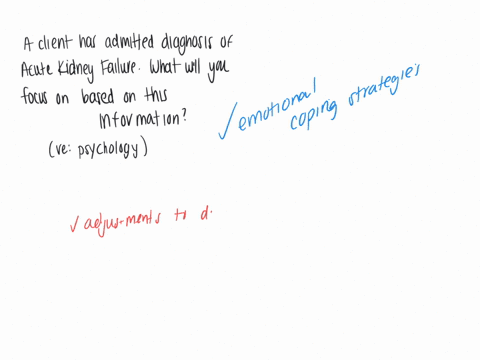 A client has admitted diagnosis of
Acute Kidney Failure. What will you
focus on based on this
information?
(re: psychology)
✓ emotional
coping strategies
✓ adjus-ments to d